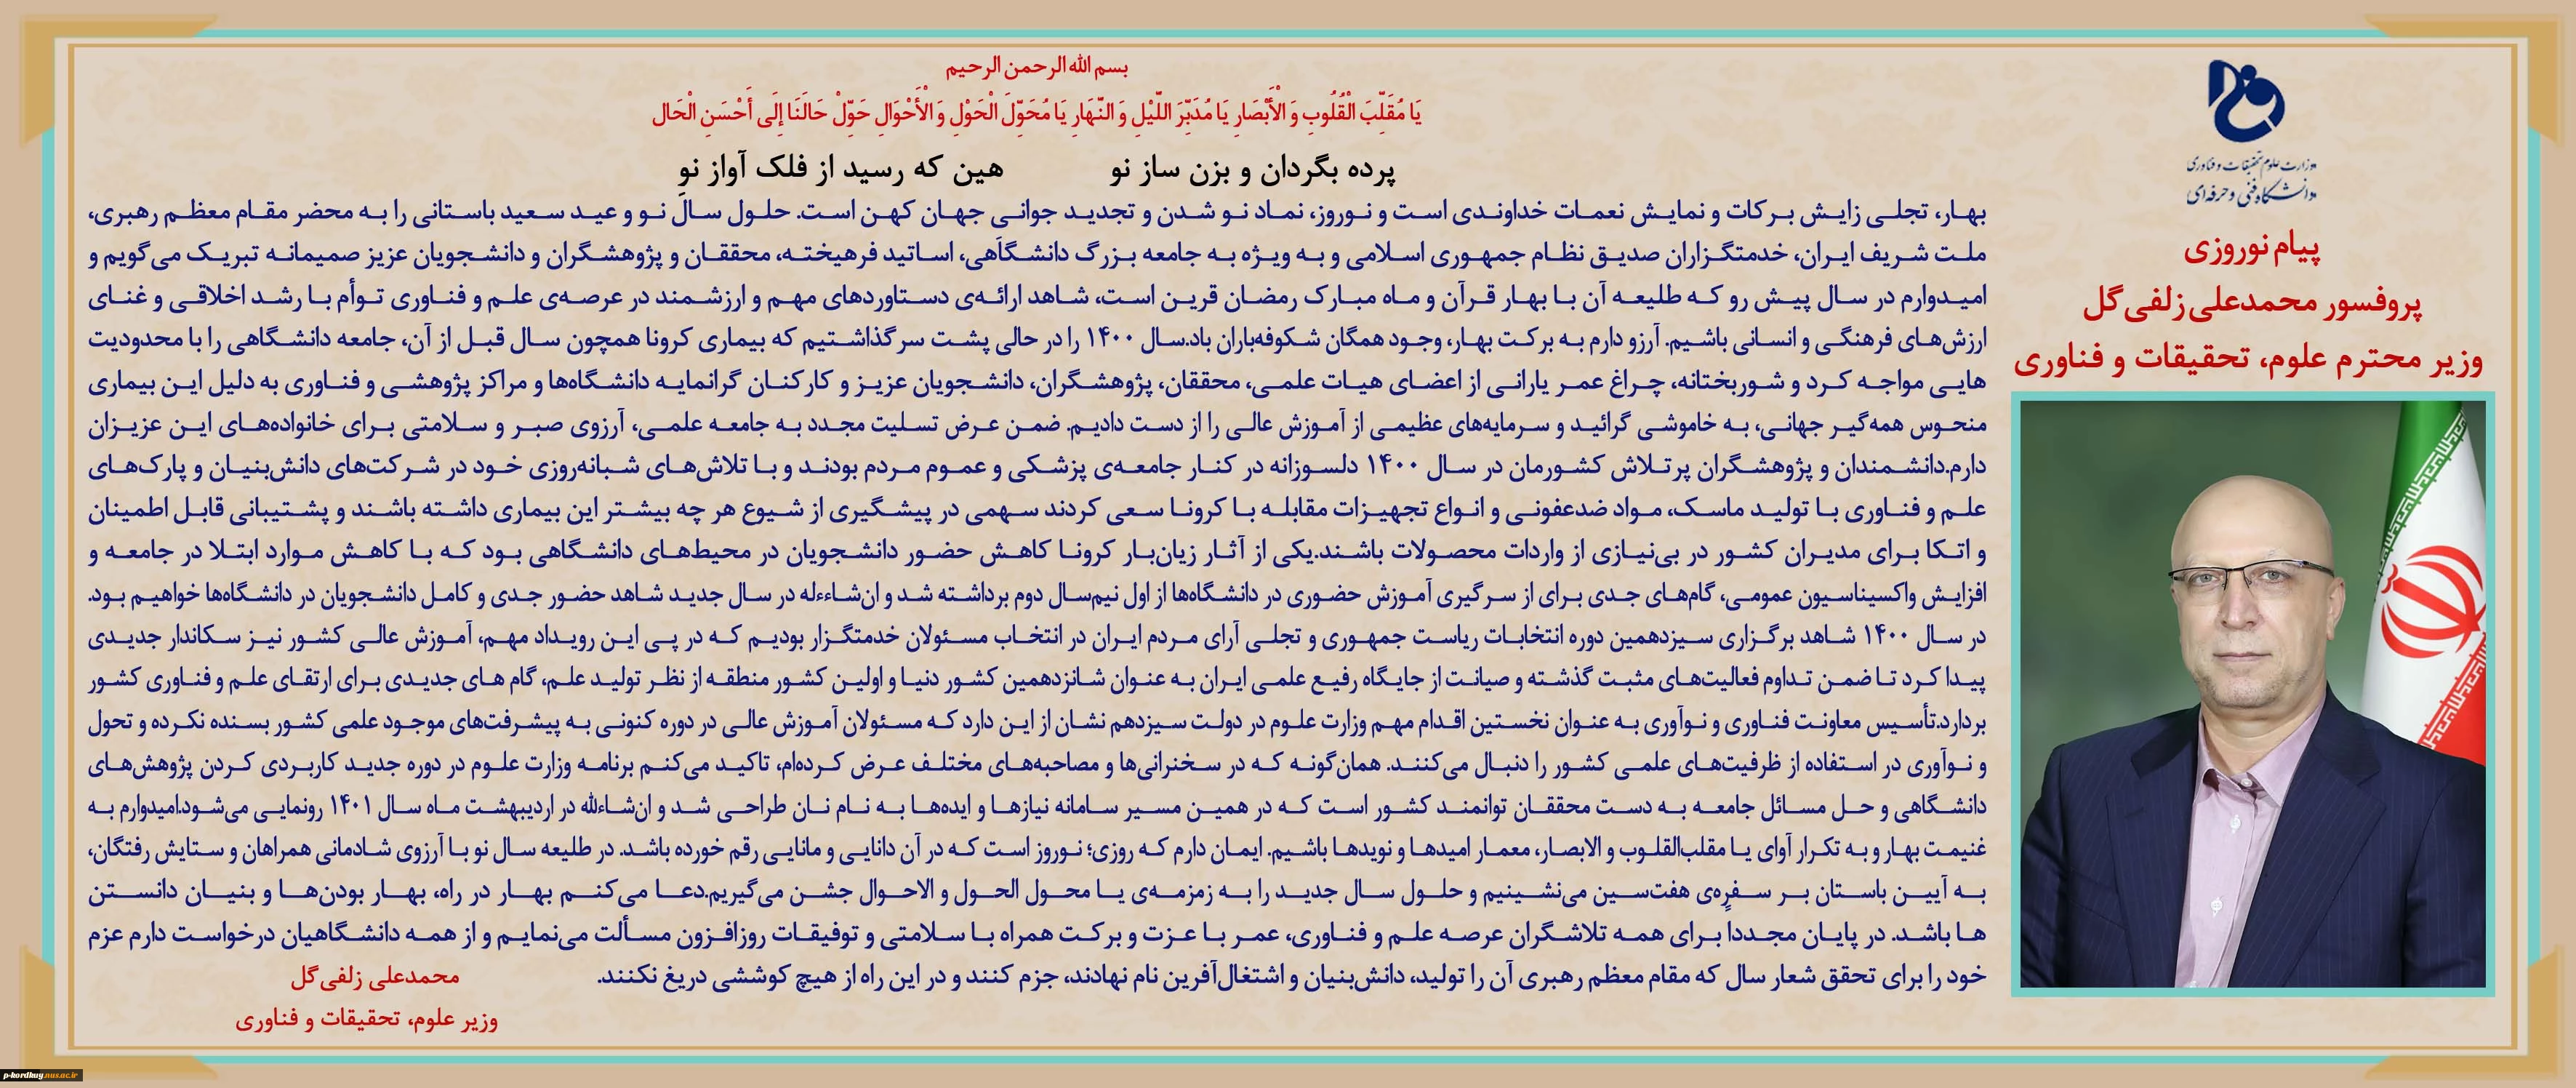 وزارت علوم تحقیقات و فناوری
دانشگاه فنی و حرفه‌ای
پیام نوروزی
پروفسور محمدعلی زلفی‌گل
وزیر محترم علوم، تحقیقات و فناوری
بسم الله الرحمن الرحیم
یَا مُقَلِّبَ الْقُلُوبِ وَ الْأَبْصَارِ یَا مُدَبِّرَ اللَّیْلِ وَ النَّهَارِ یَا مُحَوِّلَ الْحَوْلِ وَ الْأَحْوَالِ حَوِّلْ حَالَنَا إِلَى أَحْسَنِ الْحَال
پرده بگردان و بزن ساز نو هین که رسید از فلک آواز نو
بهار، تجلی زایش برکات و نمایش نعمات خداوندی است و نوروز، نماد نو شدن و تجدید جوانی جهان کهن است. حلول سال نو و عید سعید باستانی را به محضر مقام معظم رهبری،
ملت شریف ایران، خدمتگزاران صدیق نظام جمهوری اسلامی و به ویژه به جامعه بزرگ دانشگاهی، اساتید فرهیخته، محققان و پژوهشگران و دانشجویان عزیز صمیمانه تبریک می‌گویم و
امیدوارم در سال پیش رو که طلیعه آن با بهار قرآن و ماه مبارک رمضان قرین است، شاهد ارائه‌ی دستاوردهای مهم و ارزشمند در عرصه‌ی علم و فناوری توأم با رشد اخلاقی و غنای
ارزش‌های فرهنگی و انسانی باشیم. آرزو دارم به برکت بهار، وجود همگان شکوفه‌باران باد.سال ۱۴۰۰ را در حالی پشت سر گذاشتیم که بیماری کرونا همچون سال قبل از آن، جامعه دانشگاهی را با محدودیت
هایی مواجه کرد و شوربختانه، چراغ عمر یارانی از اعضای هیات علمی، محققان، پژوهشگران، دانشجویان عزیز و کارکنان گرانمایه دانشگاه‌ها و مراکز پژوهشی و فناوری به دلیل این بیماری
منحوس همه‌گیر جهانی، به خاموشی گرائید و سرمایه‌های عظیمی از آموزش عالی را از دست دادیم. ضمن عرض تسلیت مجدد به جامعه علمی، آرزوی صبر و سلامتی برای خانواده‌های این عزیزان
دارم.دانشمندان و پژوهشگران پرتلاش کشورمان در سال ۱۴۰۰ دلسوزانه در کنار جامعه‌ی پزشکی و عموم مردم بودند و با تلاش‌های شبانه‌روزی خود در شرکت‌های دانش‌بنیان و پارک‌های
علم و فناوری با تولید ماسک، مواد ضدعفونی و انواع تجهیزات مقابله با کرونا سعی کردند سهمی در پیشگیری از شیوع هر چه بیشتر این بیماری داشته باشند و پشتیبانی قابل اطمینان
و اتکا برای مدیران کشور در بی‌نیازی از واردات محصولات باشند.یکی از آثار زیان‌بار کرونا کاهش حضور دانشجویان در محیط‌های دانشگاهی بود که با کاهش موارد ابتلا در جامعه و
افزایش واکسیناسیون عمومی، گام‌های جدی برای از سرگیری آموزش حضوری در دانشگاه‌ها از اول نیم‌سال دوم برداشته شد و ان‌شاءءله در سال جدید شاهد حضور جدی و کامل دانشجویان در دانشگاه‌ها خواهیم بود.
در سال ۱۴۰۰ شاهد برگزاری سیزدهمین دوره انتخابات ریاست جمهوری و تجلی آرای مردم ایران در انتخاب مسئولان خدمتگزار بودیم که در پی این رویداد مهم، آموزش عالی کشور نیز سکاندار جدیدی
پیدا کرد تا ضمن تداوم فعالیت‌های مثبت گذشته و صیانت از جایگاه رفیع علمی ایران به عنوان شانزدهمین کشور دنیا و اولین کشور منطقه از نظر تولید علم، گام های جدیدی برای ارتقای علم و فناوری کشور
بردارد.تأسیس معاونت فناوری و نوآوری به عنوان نخستین اقدام مهم وزارت علوم در دولت سیزدهم نشان از این دارد که مسئولان آموزش عالی در دوره کنونی به پیشرفت‌های موجود علمی کشور بسنده نکرده و تحول
و نوآوری در استفاده از ظرفیت‌های علمی کشور را دنبال می‌کنند. همان‌گونه که در سخنرانی‌ها و مصاحبه‌های مختلف عرض کرده‌ام، تاکید می‌کنم برنامه وزارت علوم در دوره جدید کاربردی کردن پژوهش‌های
دانشگاهی و حل مسائل جامعه به دست محققان توانمند کشور است که در همین مسیر سامانه نیازها و ایده‌ها به نام نان طراحی شد و ان‌شاءالله در اردیبهشت ماه سال ۱۴۰۱ رونمایی می‌شود.امیدوارم به
غنیمت بهار و به تکرار آوای یا مقلب‌القلوب و الابصار، معمار امیدها و نویدها باشیم. ایمان دارم که روزی؛ نوروز است که در آن دانایی و مانایی رقم خورده باشد. در طلیعه سال نو با آرزوی شادمانی همراهان و ستایش رفتگان،
به آیین باستان بر سفره‌ی هفت‌سین می‌نشینیم و حلول سال جدید را به زمزمه‌ی یا محول الحول و الاحوال جشن می‌گیریم.دعا می‌کنم بهار در راه، بهار بودن‌ها و بنیان دانستن
ها باشد. در پایان مجدداً برای همه تلاشگران عرصه علم و فناوری، عمر با عزت و برکت همراه با سلامتی و توفیقات روزافزون مسألت می‌نمایم و از همه دانشگاهیان درخواست دارم عزم
خود را برای تحقق شعار سال که مقام معظم رهبری آن را تولید، دانش‌بنیان و اشتغال‌آفرین نام نهادند، جزم کنند و در این راه از هیچ کوششی دریغ نکنند.
محمدعلی زلفی‌گل
وزیر علوم، تحقیقات و فناوری
p-kordkuy.nus.ac.ir